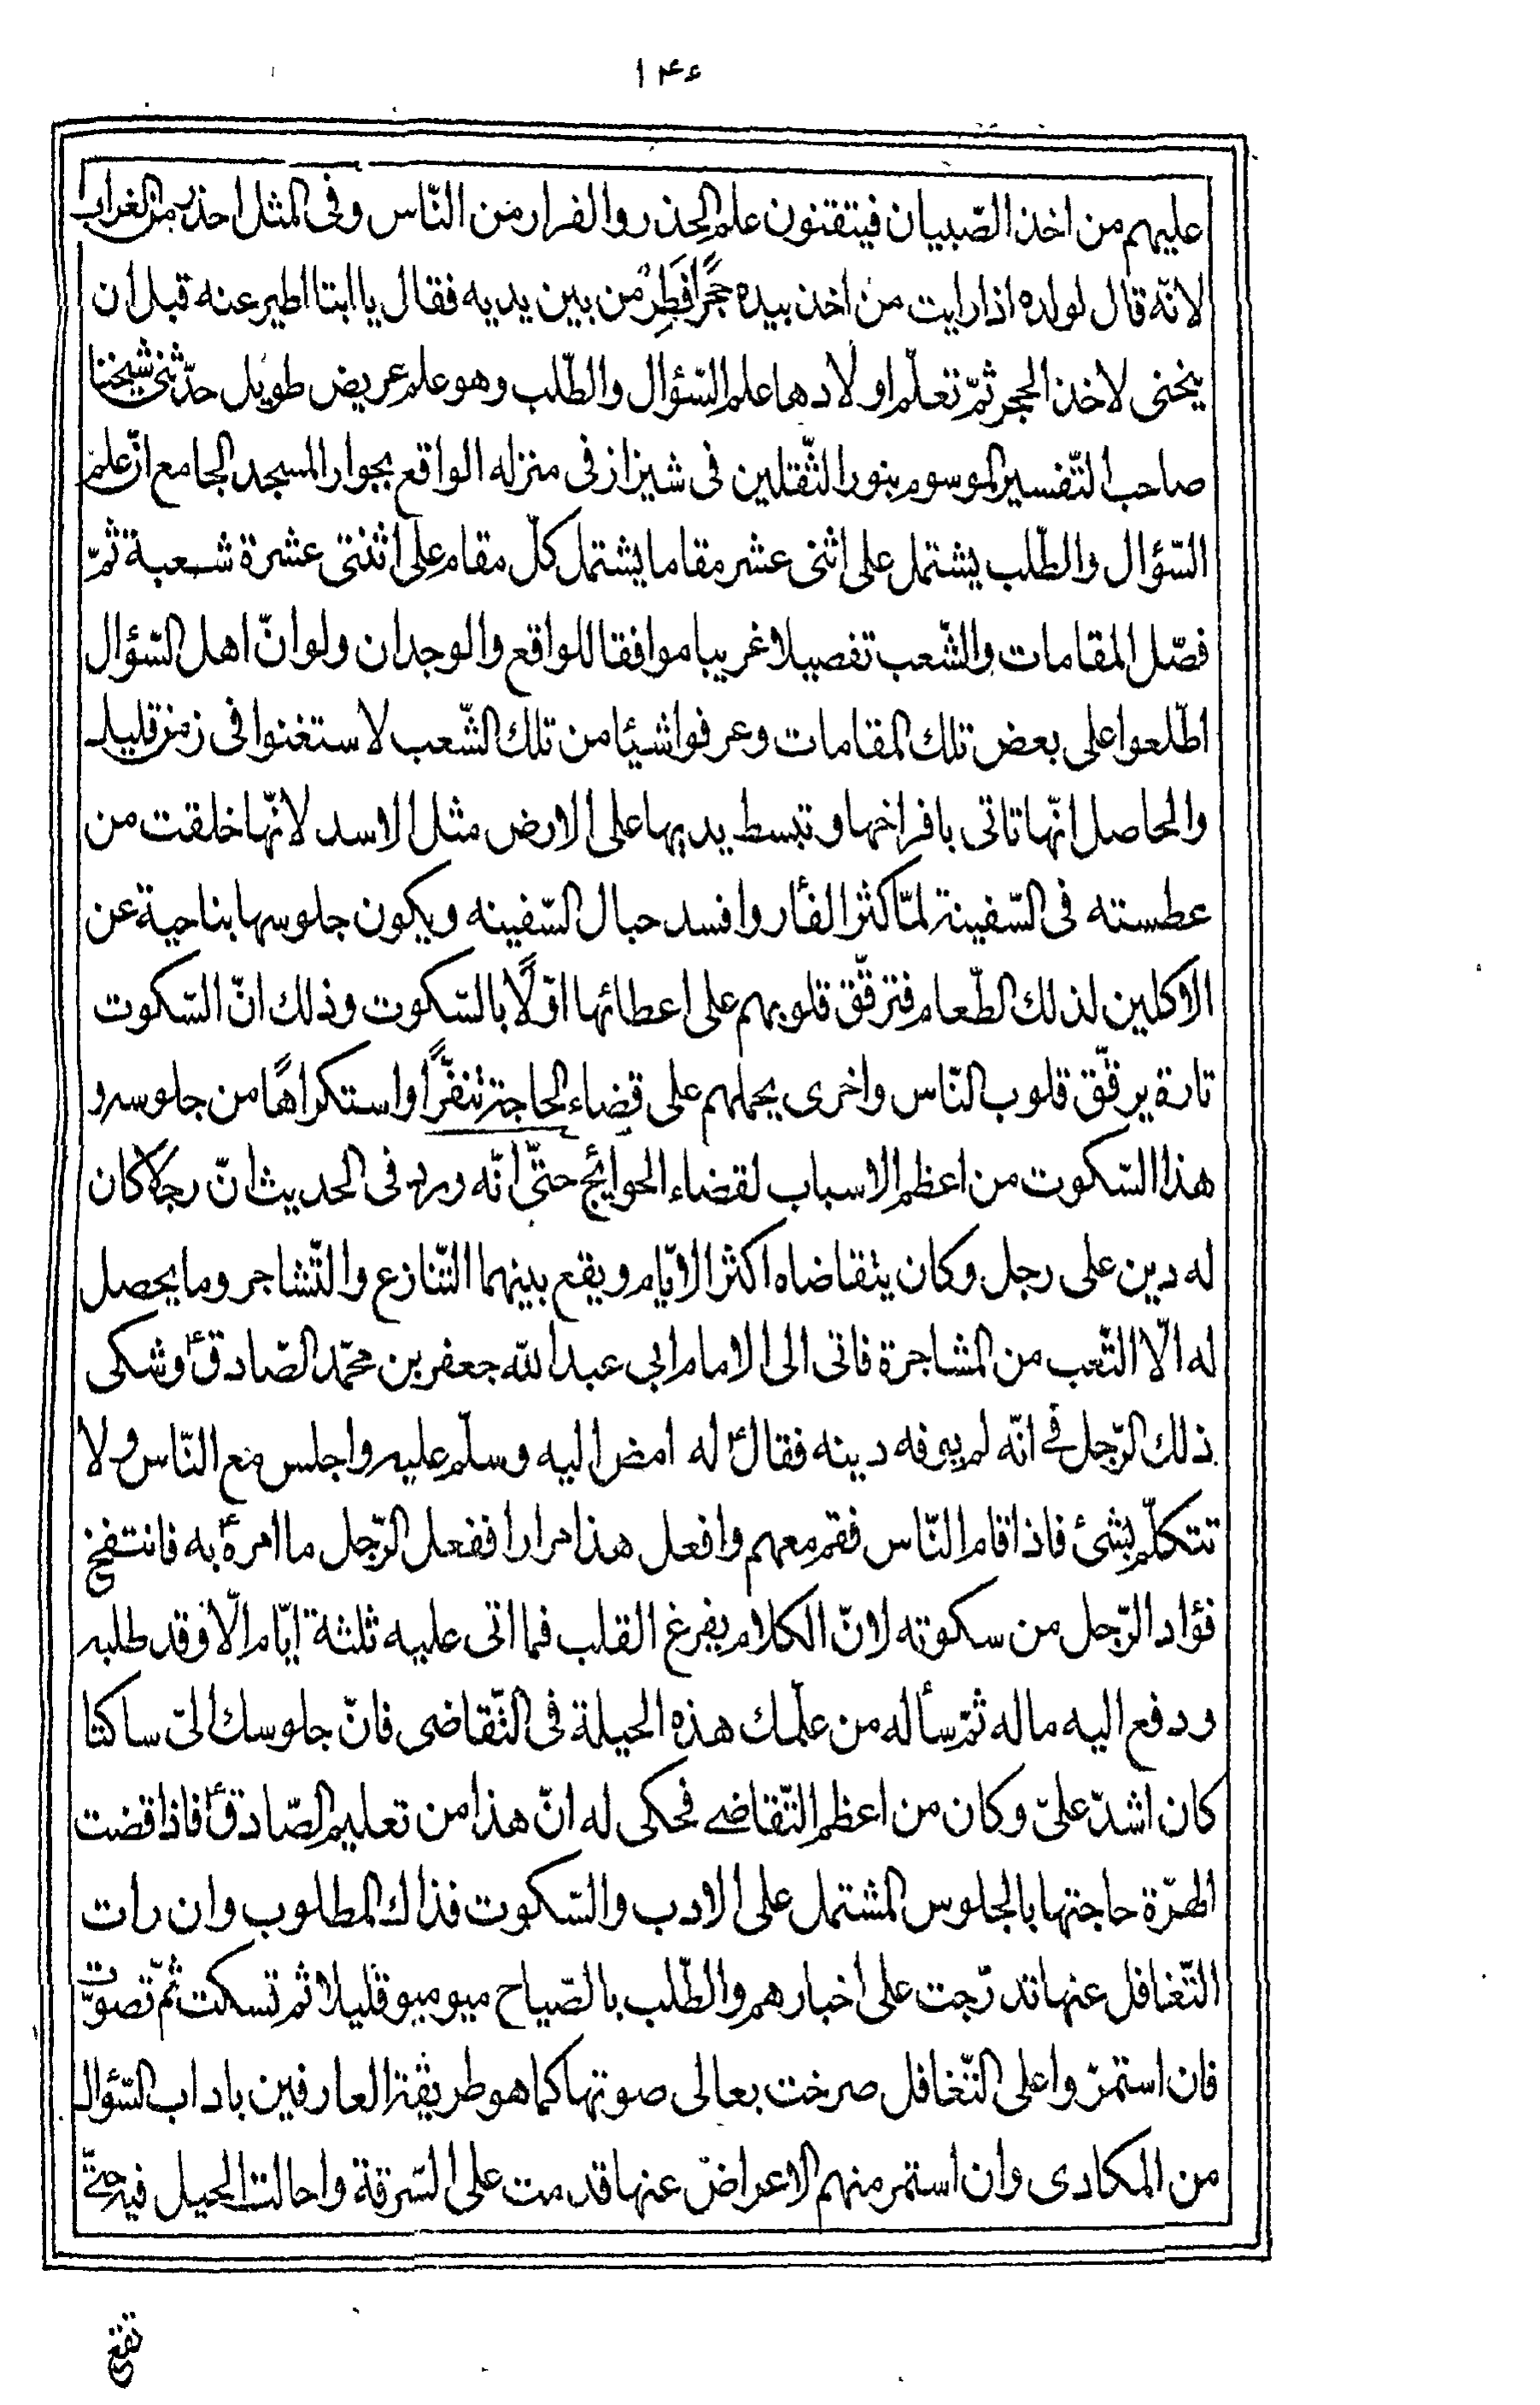 ۱۴۶
عليهم من اخذ الصّبيان فيتقنون علم الحذر والفرار من النّاس وفى المثل احذر من الغراب
لانّه قال لولده اذا رايت من اخذ بيده حجرًا فَطِرْ من بين يديه فقال يا ابتا اطير عنه قبل ان
ينحنى لاخذ الحجر ثمّ تعلّم اولادها علم السّؤال والطّلب وهو علم عريض طويل حدّثنى شيخنا
صاحب التّفسير الموسوم بنور الثّقلين فى شيراز فى منزله الواقع بجوار المسجد الجامع انّ علم
السّؤال والطّلب يشتمل على اثنى عشر مقاما يشتمل كلّ مقام على اثنتى عشرة شعبة ثمّ
فصّل المقامات والشّعب تفصيلا غريبا موافقا للواقع والوجدان ولو انّ اهل السّؤال
اطّلعوا على بعض تلك المقامات وعرفوا شيئا من تلك الشّعب لاستغنوا فى زمن قليل
والحاصل انّها تاتى بافراخها وتبسط يديها على الارض مثل الاسد لانّها خلقت من
عطسته فى السّفينة لمّا كثر الفأر وافسد حبال السّفينه ويكون جلوسها بناحية عن
الاكلين لذلك الطّعام فترقّق قلوبهم على اعطائها اوّلًا بالسّكوت وذلك انّ السّكوت
تارة يرقّق قلوب النّاس واخرى يحملهم على قضاء الحاجة تنفرًّا واستكراهًا من جلوسه و
هذا السّكوت من اعظم الاسباب لقضاء الحوائج حتّى انّه ورد فى الحديث انّ رجلا كان
له دين على رجل وكان يتقاضاه اكثر الايّام ويقع بينهما التّنازع والتّشاجر وما يحصل
له الّا التّعب من المشاجرة فاتى الى الامام ابي عبد اللّه جعفر بن محمّد الصّادقؑ وشكى
ذلك الرّجل فى انّه لم يوفه دينه فقالؑ له امض اليه وسلّم عليه واجلس مع النّاس ولا
تتكلّم بشئ فاذا قام النّاس فقم معهم وافعل هذا مرارا ففعل الرّجل ما امرهؑ به فانتفخ
فؤاد الرّجل من سكوته لانّ الكلام يفرغ القلب فما اتى عليه ثلثة ايّام الّا وقد طلبه
ودفع اليه ماله ثمّ سأله من علّمك هذه الحيلة فى التّقاضى فانّ جلوسك الىّ ساكتا
كان اشدّ علىّ وكان من اعظم التّقاضى فحكى له انّ هذا من تعليم الصّادقؑ فاذا قضت
الهرّة حاجتها بالجلوس المشتمل على الادب والسّكوت فذاك المطلوب وان رات
التّغافل عنها تدرّجت على اخبارهم والطّلب بالصّياح ميو ميو قليلا ثم تسكت ثمّ تصوّت
فان استمرّوا على التّغافل صرخت بعالى صوتها كما هو طريقة العارفين باداب السّؤال
من المكادى وان استمر منهم الاعراض عنها قدمت على السّرقة واحالت الحيل فيه حتّى
تقع